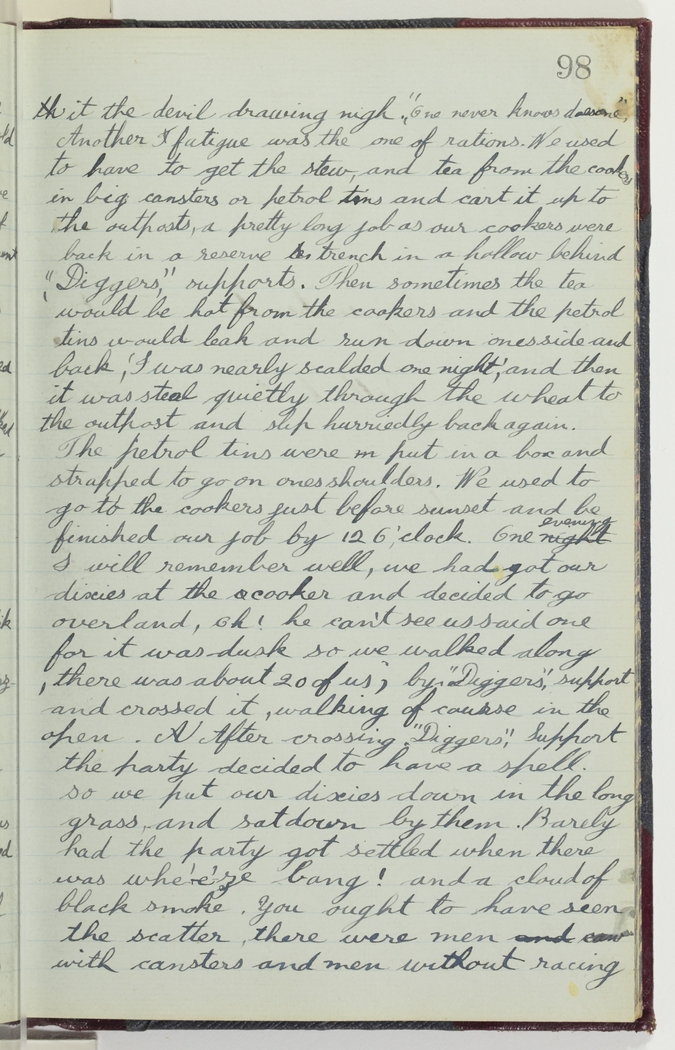 98
it the devil drawing nigh. "One never knows doesone",
Another fatigue was the one of rations. We used
to have to get the stew, and tea from the cookers
in big cansters or petrol tins and cart it up to
the outposts, a pretty long job as our cookers were
back in a reserve trench in a hollow behind
"Diggers", supports. Then sometimes the tea
would be hot from the cookers and the petrol
tins would leak and run down onesside and
back, 'I was nearly scalded one night', and then
it was steal quietly through the wheat to
the outpost and slip hurriedly back again.
The petrol tins were put in a box and
strapped to go on onesshoulders. We used to
go to the cookers just before sunset and be
finished our job by 12 O'clock. One night evening
I will remember well, we had got our
dixies at the cooker and decided to go
overland, oh! he can't see us said one
for it was dusk so we walked along
, there was about 20 of us, by "Diggers", support
and crossed it, walking of course in the
open. After crossing "Diggers", Support
the party decided to have a spell.
so we put our dixies down in the long
grass, and sat down by them. Barely
had the party got settled when there
was bang! and a cloud of
black smoke. You ought to have seen
the scatter, there were men and
with cansters and men without racing